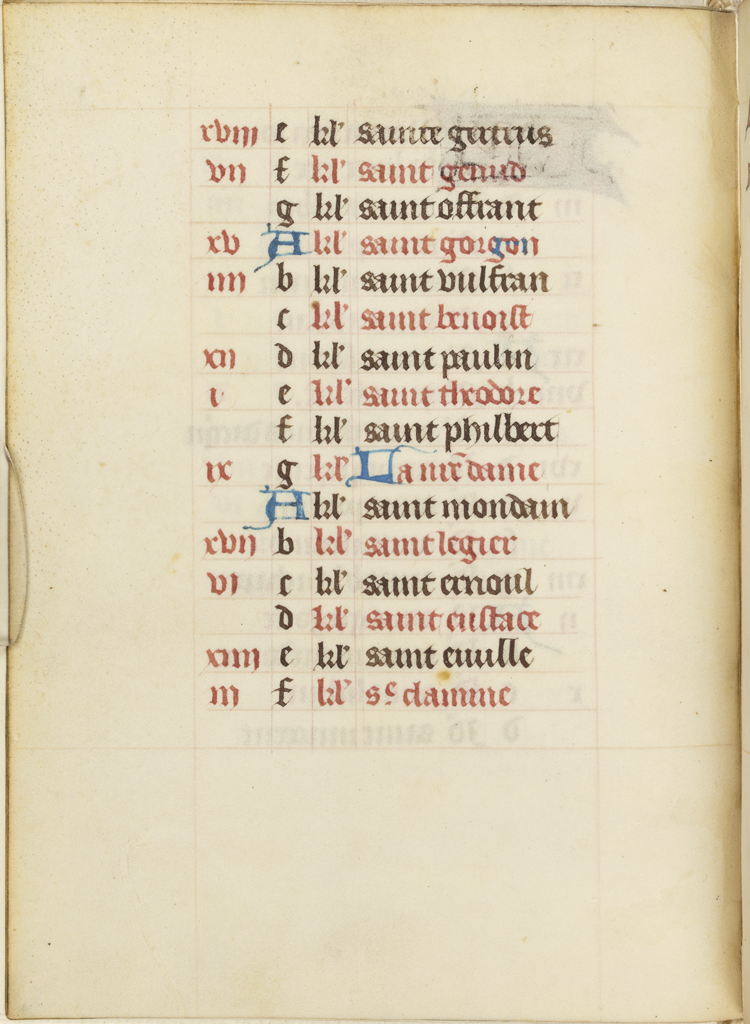 xviij e kl' sainte gertrus
vij f kl' saint
g kl' saint offrant
xv A kl' saint gorgon
iiij b kl' saint vulfran
c kl' saint benoist
xij d kl' saint paulin
i e kl' saint theodore
f kl' saint philbert
ix g kl' La nr̄e dame
A kl' saint mondain
xvij b kl' saint legier
vi c kl' saint ernoul
d kl' saint eustace
xiiij e kl' saint
iij f kl' sᵉ